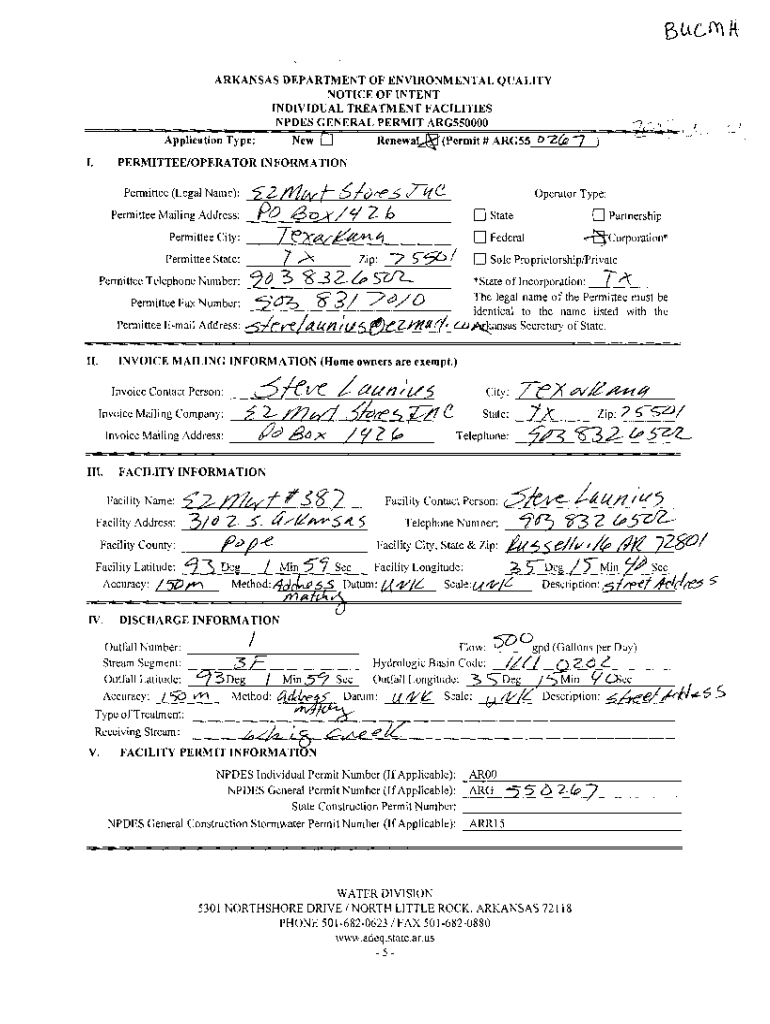 BUCMH
ARKANSAS DEPARTMENT OF ENVIRONMENTAL QUALITY
NOTICE OF INTENT
INDIVIDUAL TREATMENT FACILITIES
NPDES GENERAL PERMIT ARG550000
Application Type: New ☐ Renewal ☒ (Permit # ARG55 0267 )
I. PERMITTEE/OPERATOR INFORMATION
Permittee (Legal Name): EZ Mart Stores INC Operator Type:
Permittee Mailing Address: PO Box 1426 ☐ State ☐ Partnership
Permittee City: Texarkana ☐ Federal ☒ Corporation*
Permittee State: TX Zip: 75501 ☐ Sole Proprietorship/Private
Permittee Telephone Number: 903 832 6502 *State of Incorporation: TX
Permittee Fax Number: 903 831 7010 The legal name of the Permittee must be
identical to the name listed with the
Permittee E-mail Address: stevelaunius@ezmart.com Arkansas Secretary of State.
II. INVOICE MAILING INFORMATION (Home owners are exempt.)
Invoice Contact Person: Steve Launius City: Texarkana
Invoice Mailing Company: EZ Mart Stores INC State: TX Zip: 75501
Invoice Mailing Address: PO Box 1426 Telephone: 903 832 6502
III. FACILITY INFORMATION
Facility Name: EZ Mart #387 Facility Contact Person: Steve Launius
Facility Address: 3102 S. Arkansas Telephone Number: 903 832 6502
Facility County: Pope Facility City, State & Zip: Russellville AR 72801
Facility Latitude: 93 Deg 1 Min 59 Sec Facility Longitude: 35 Deg 15 Min 40 Sec
Accuracy: 150m Method: Address matching Datum: UNK Scale: UNK Description: street Address
IV. DISCHARGE INFORMATION
Outfall Number: 1 Flow: 500 gpd (Gallons per Day)
Stream Segment: 3F Hydrologic Basin Code: 1111 0202
Outfall Latitude: 93 Deg 1 Min 59 Sec Outfall Longitude: 35 Deg 15 Min 40 Sec
Accuracy: 150 m Method: Address matching Datum: UNK Scale: UNK Description: street Address
Type of Treatment:
Receiving Stream: whig creek
V. FACILITY PERMIT INFORMATION
NPDES Individual Permit Number (If Applicable): AR00
NPDES General Permit Number (If Applicable): ARG 550267
State Construction Permit Number:
NPDES General Construction Stormwater Permit Number (If Applicable): ARR15
WATER DIVISION
5301 NORTHSHORE DRIVE / NORTH LITTLE ROCK, ARKANSAS 72118
PHONE 501-682-0623 / FAX 501-682-0880
www.adeq.state.ar.us
- 5 -